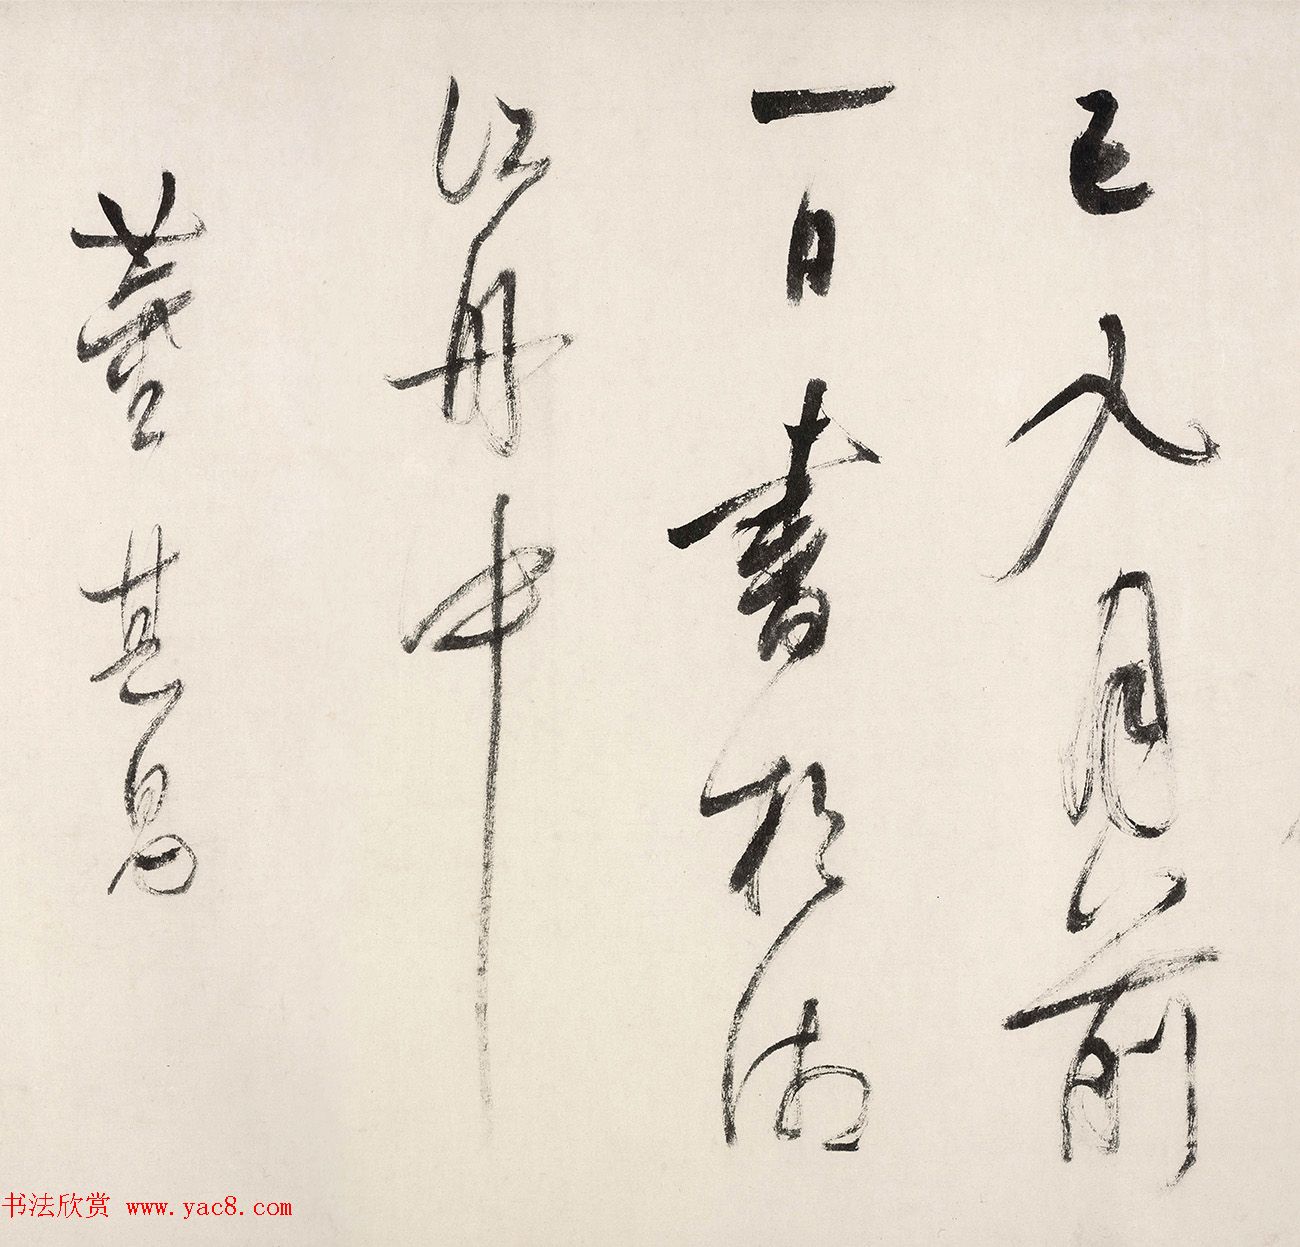 己九月前
一日書於浙
江舟中
董其昌
书法欣赏 www.yac8.com